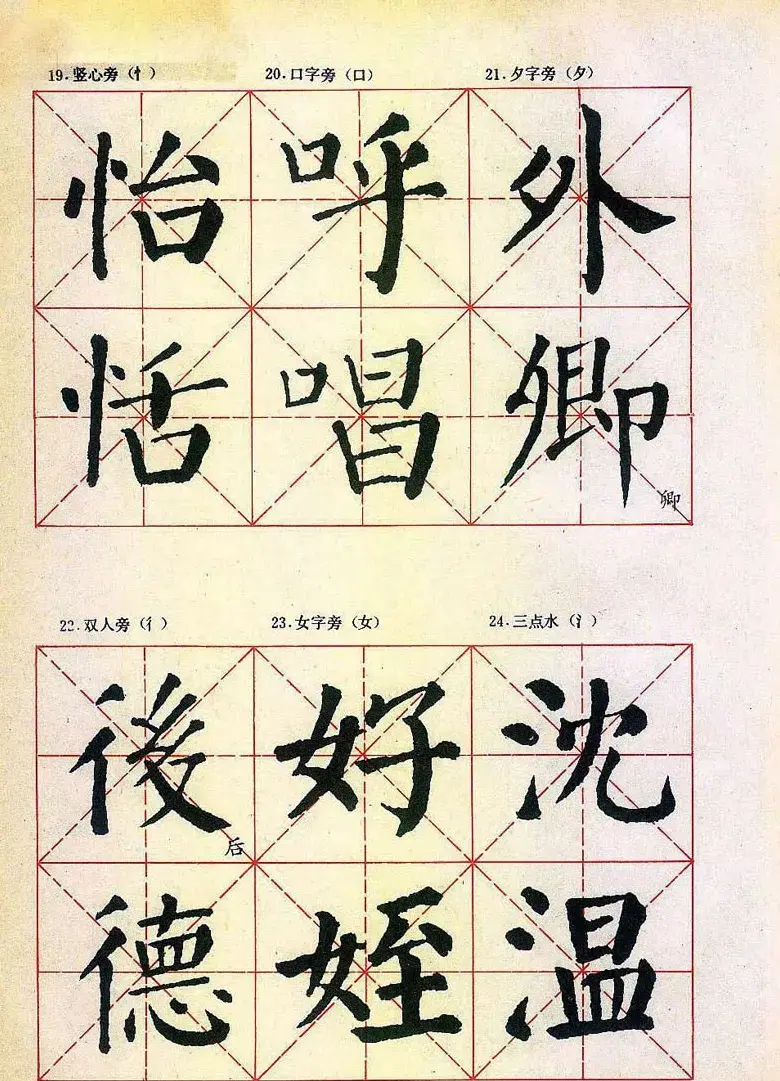 19.竖心旁（忄） 20.口字旁（口） 21.夕字旁（夕）
怡 呼 外
恬 唱 卿
卿
22.双人旁（彳） 23.女字旁（女） 24.三点水（氵）
後 好 沈
后
德 姪 温